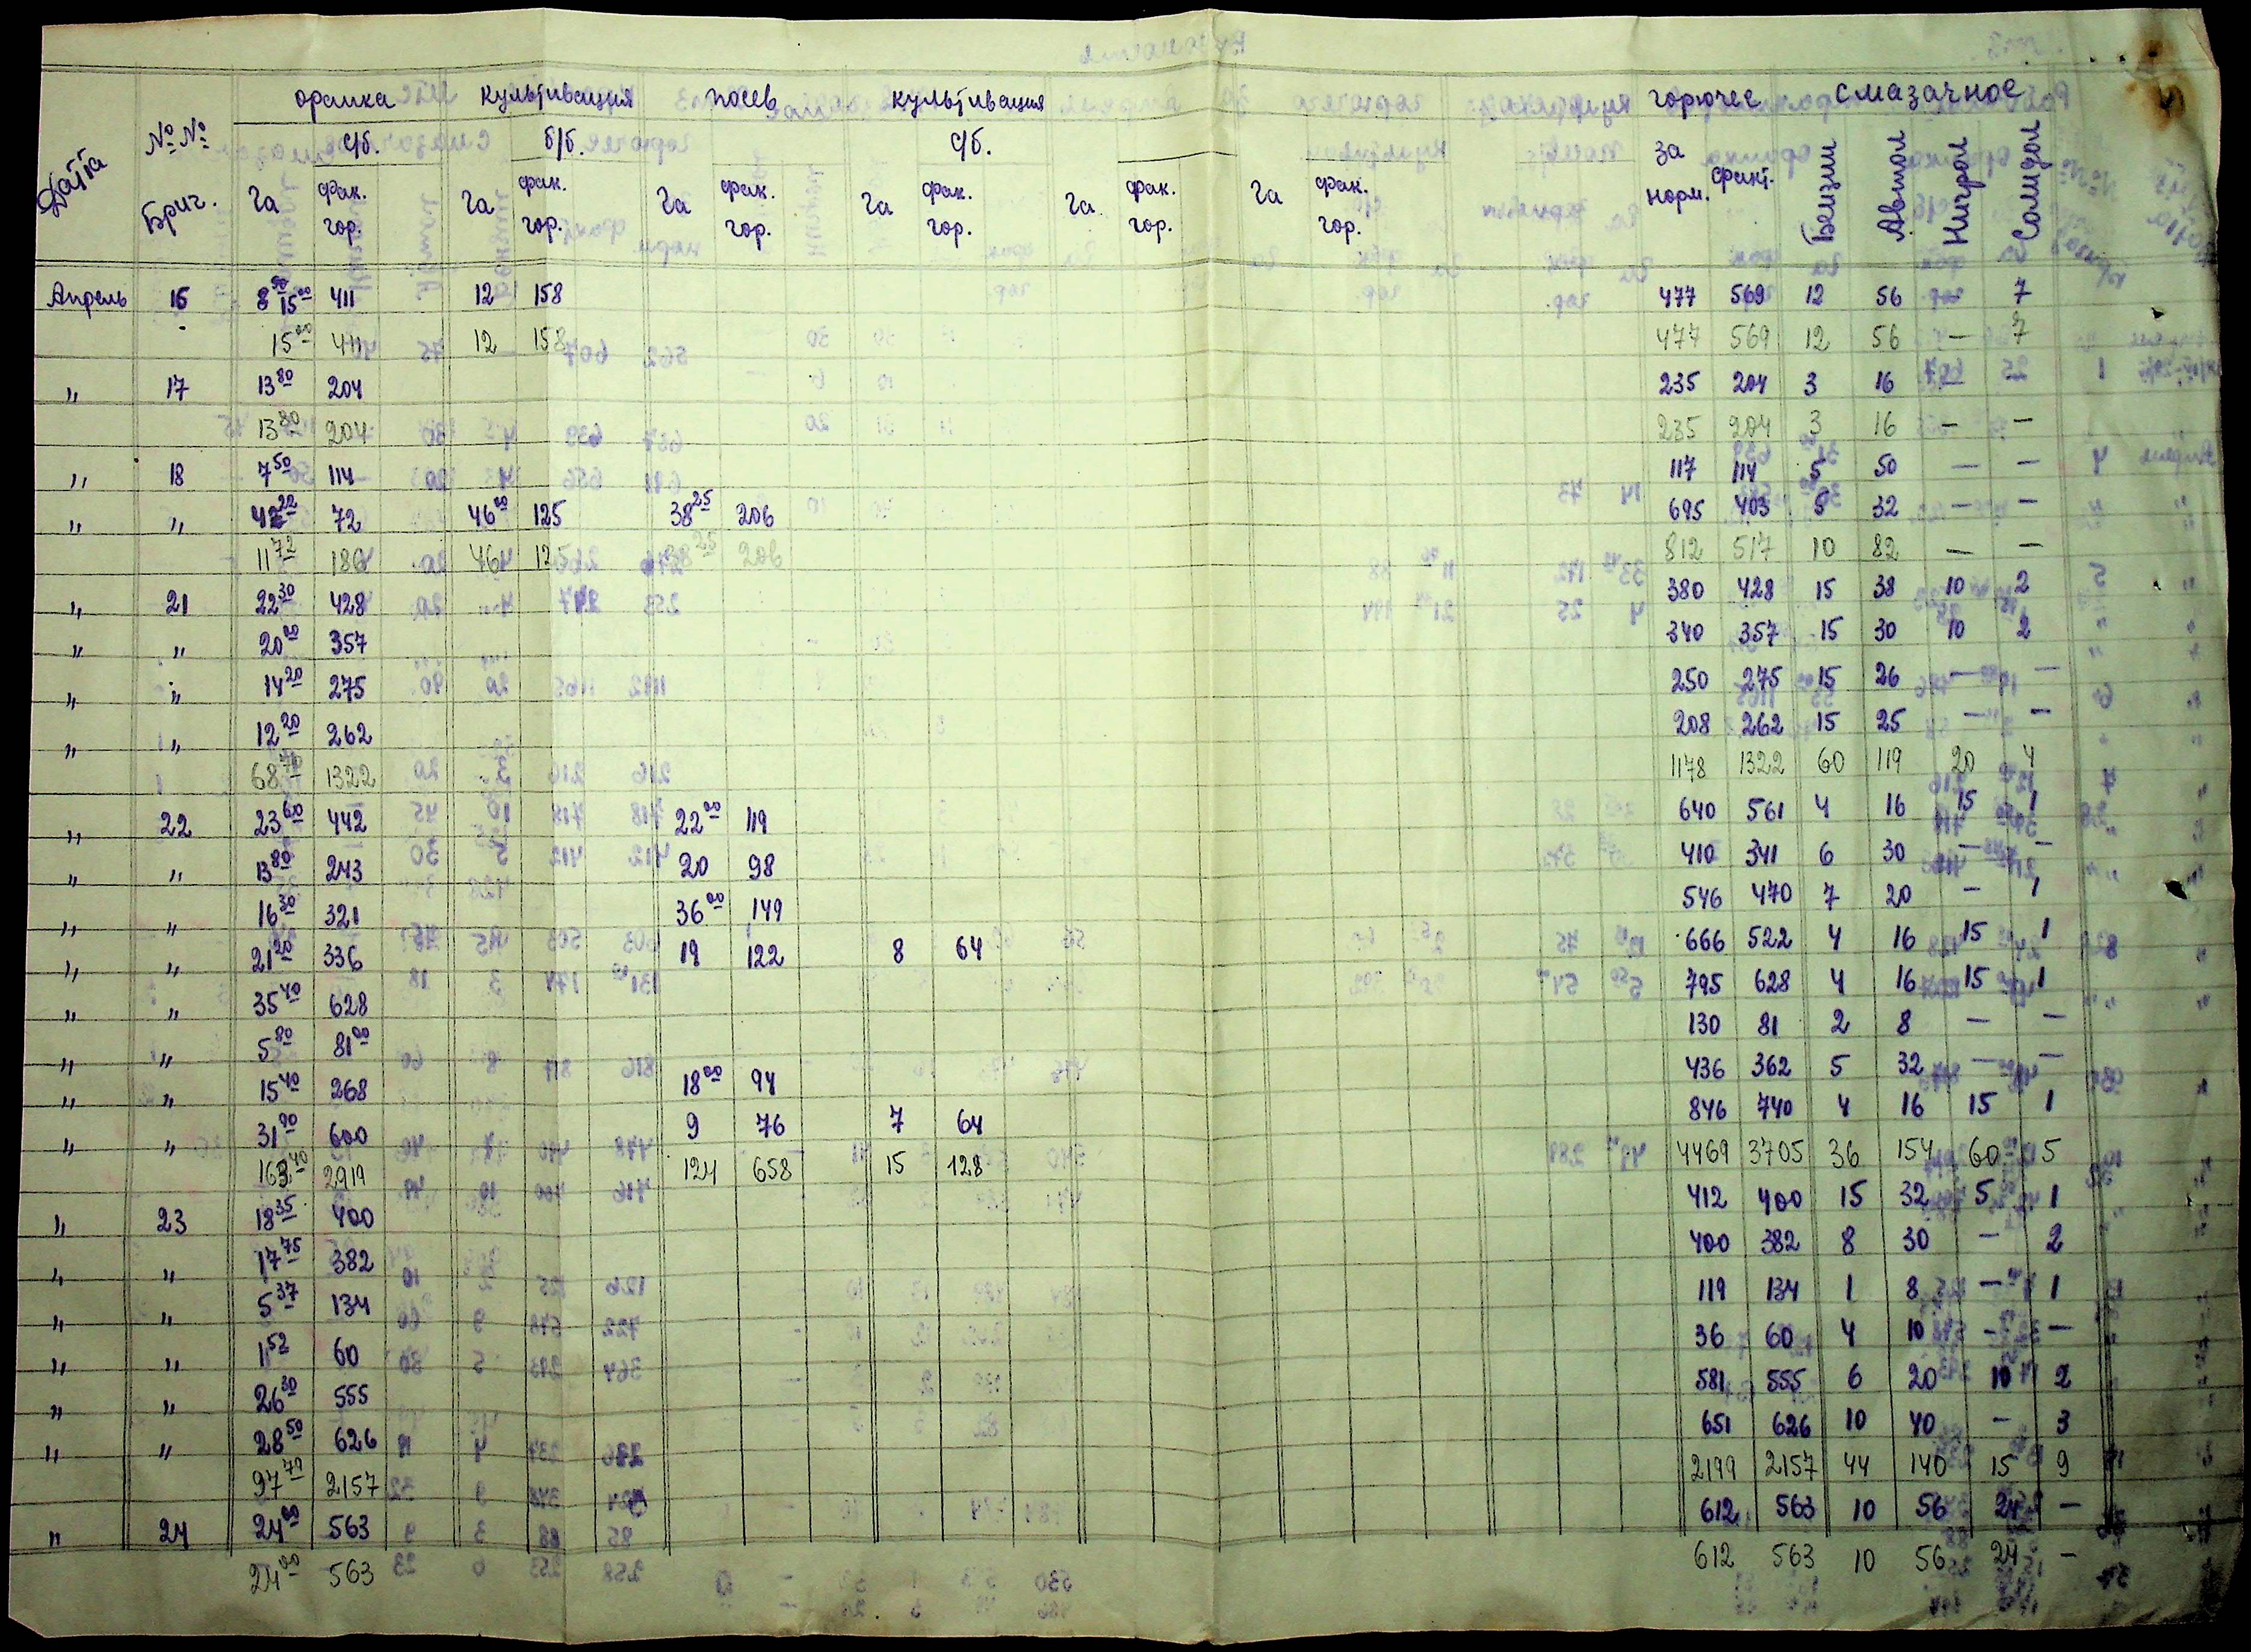 оранка культивация посев культивация горючее смазачное
Дата №№ Бриг. с/б. б/б. с/б. за норм. факт. Бензин Автол Нигрол Солидол
Га фак. гор. Га фак. гор. Га фак. гор. Га фак. гор. Га фак. гор. Га фак. гор.
Апрель 16 15⁰⁰ 411 12 158 477 569 12 56 7
15⁰⁰ 411 12 158 477 569 12 56 — 7
" 17 13⁸⁰ 204 235 204 3 16 — —
13⁸⁰ 204 235 204 3 16 — —
" 18 7⁵⁰ 114 117 114 5 50 — —
" " 4²² 72 46⁰⁰ 125 38²⁵ 206 695 403 5 32 — —
11⁷² 186 46 125 38²⁵ 206 812 517 10 82 — —
" 21 22³⁰ 428 380 428 15 38 10 2
" " 20⁰⁰ 357 340 357 15 30 10 2
" " 14²⁰ 275 250 275 15 26 — —
" " 12²⁰ 262 208 262 15 25 — —
68⁷⁰ 1322 1178 1322 60 119 20 4
" 22 23⁶⁰ 442 22⁰⁰ 119 640 561 4 16 15 1
" " 13⁸⁰ 243 20 98 410 341 6 30 — —
" " 16³⁰ 321 36⁰⁰ 149 546 470 7 20 — 1
" " 21²⁰ 336 19 122 8 64 666 522 4 16 15 1
" " 35⁴⁰ 628 795 628 4 16 15 1
" " 5⁸⁰ 81⁰⁰ 130 81 2 8 — —
" " 15⁴⁰ 268 18⁰⁰ 94 436 362 5 32 — —
" " 31⁹⁰ 600 9 76 7 64 846 740 4 16 15 1
163⁴⁰ 2919 124 658 15 128 4469 3705 36 154 60 5
" 23 18³⁵ 400 412 400 15 32 5 1
" " 17⁷⁵ 382 400 382 8 30 — 2
" " 5³⁷ 134 119 134 1 8 — 1
" " 1⁵² 60 36 60 4 10 — —
" " 26³⁰ 555 581 555 6 20 10 2
" " 28⁵⁰ 626 651 626 10 40 — 3
97⁷⁹ 2157 2199 2157 44 140 15 9
" 24 24⁰⁰ 563 612 563 10 56 24 —
24⁰⁰ 563 612 563 10 56 24 —